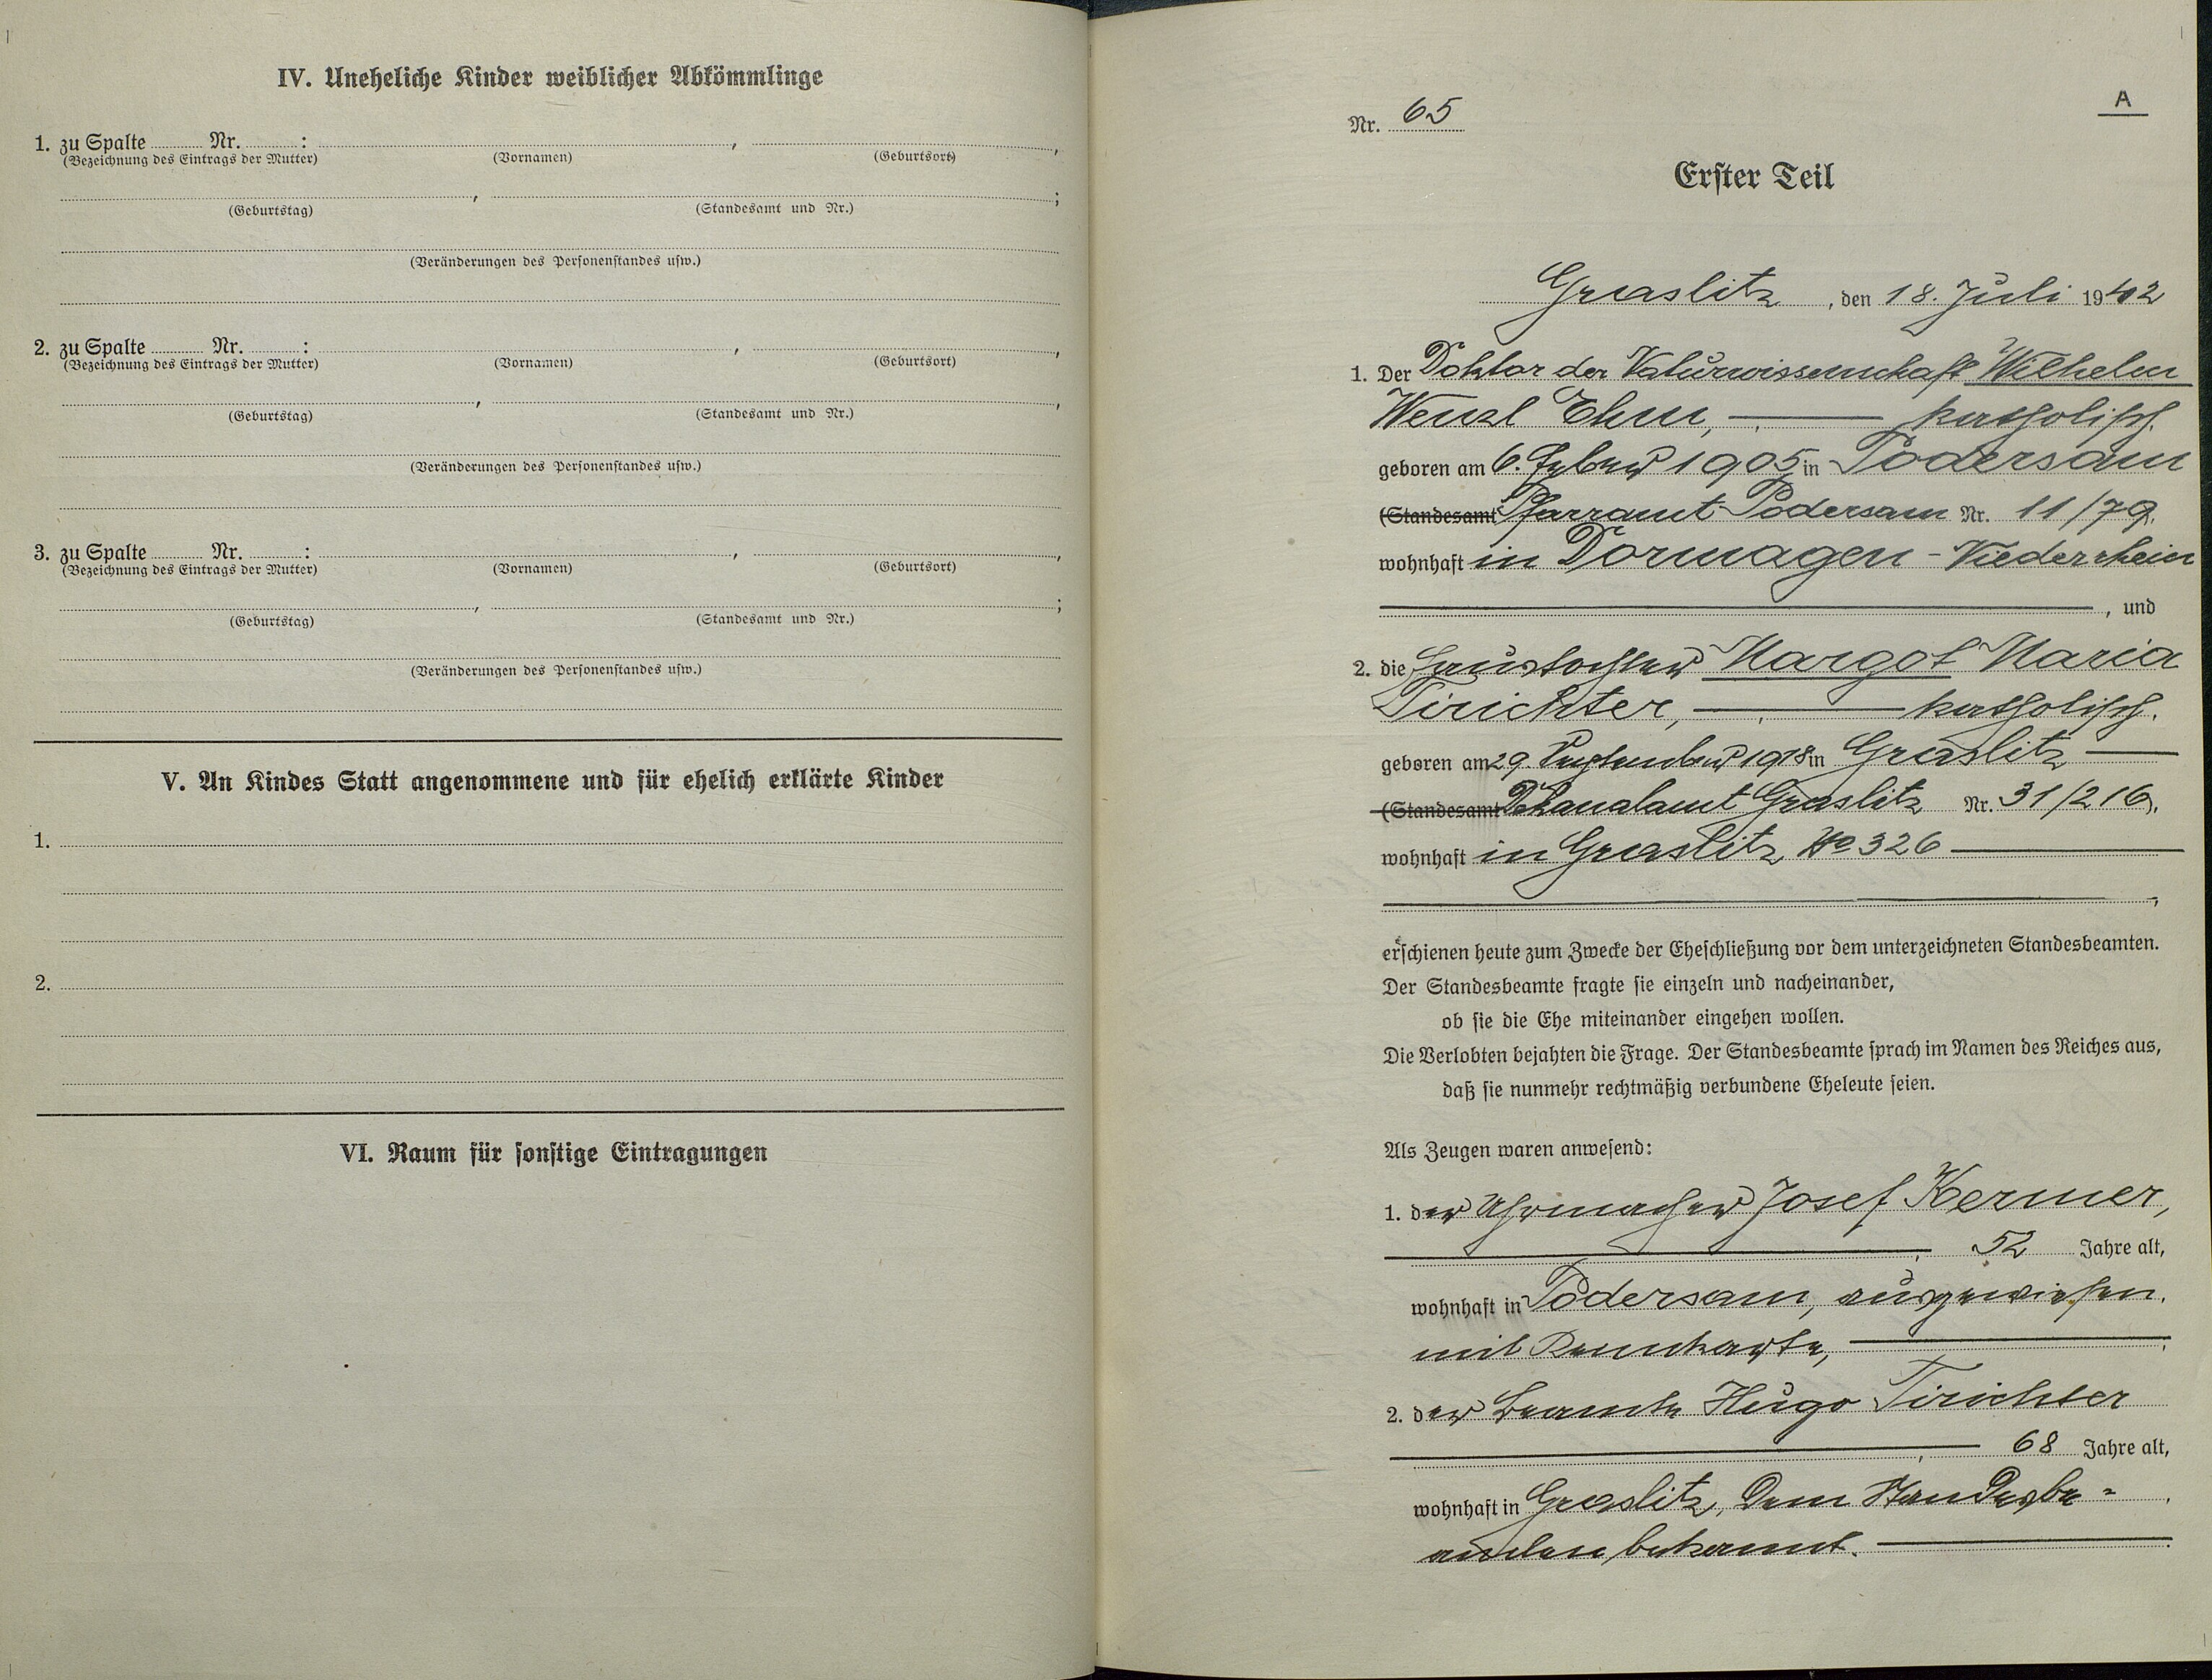 IV. Uneheliche Kinder weiblicher Abkömmlinge
1. zu Spalte Nr. : , ,
(Bezeichnung des Eintrags der Mutter) (Vornamen) (Geburtsort)
, ;
(Geburtstag) (Standesamt und Nr.)
(Veränderungen des Personenstandes usw.)
2. zu Spalte Nr. : , ,
(Bezeichnung des Eintrags der Mutter) (Vornamen) (Geburtsort)
, ,
(Geburtstag) (Standesamt und Nr.)
(Veränderungen des Personenstandes usw.)
3. zu Spalte Nr. : , ,
(Bezeichnung des Eintrags der Mutter) (Vornamen) (Geburtsort)
, ;
(Geburtstag) (Standesamt und Nr.)
(Veränderungen des Personenstandes usw.)
V. An Kindes Statt angenommene und für ehelich erklärte Kinder
1.
2.
VI. Raum für sonstige Eintragungen
A
Nr. 65
Erster Teil
Graslitz, den 18. Juli 1942
1. Der Doktor der Naturwissenschaft Wilhelm
Wenzl Ehm, katholisch.
geboren am 6. Feber 1905 in Podersam
(Standesamt Pfarramt Podersam Nr. 11/79.
wohnhaft in Dormagen - Niederrhein
, und
2. die Haustochter Margot Maria
Tirichter, katholisch.
geboren am 29. September 1918 in Graslitz
(Standesamt Dekanalamt Graslitz Nr. 31/216),
wohnhaft in Graslitz No 326
,
erschienen heute zum Zwecke der Eheschließung vor dem unterzeichneten Standesbeamten.
Der Standesbeamte fragte sie einzeln und nacheinander,
ob sie die Ehe miteinander eingehen wollen.
Die Verlobten bejahten die Frage. Der Standesbeamte sprach im Namen des Reiches aus,
daß sie nunmehr rechtmäßig verbundene Eheleute seien.
Als Zeugen waren anwesend:
1. der Uhrmacher Josef Kermer,
52 Jahre alt,
wohnhaft in Podersam, ausgewiesen
mit Kennkarte,
2. der Beamte Hugo Tirichter
68 Jahre alt,
wohnhaft in Graslitz, dem Standesbe=
amten bekannt.